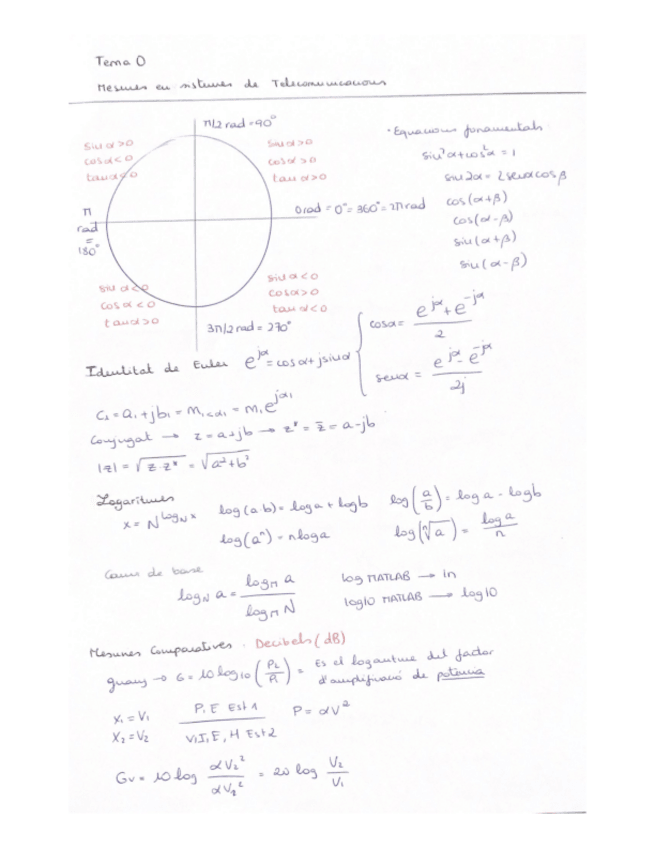 Tema 0
Mesures en sistemes de Telecomunicacions
π/2 rad = 90°
sin α>0
cos α<0
tan α<0
sin α>0
cos α>0
tan α>0
π
rad
=
180°
0 rad = 0° = 360° = 2π rad
sin α<0
cos α<0
tan α>0
sin α<0
cos α>0
tan α<0
3π/2 rad = 270°
· Equacions fonamentals
sin²α+cos²α = 1
sin 2α = 2 senα cos β
cos (α+β)
cos (α-β)
sin (α+β)
sin (α-β)
Identitat de Euler e^{jα} = cos α + j sin α
cosα = (e^{jα} + e^{-jα}) / 2
senα = (e^{jα} - e^{-jα}) / 2j
C₁ = a₁ + jb₁ = m₁∠α₁ = m₁e^{jα₁}
Conjugat → z = a+jb → z* = z̄ = a-jb
|z| = √(z·z*) = √(a²+b²)
Logaritmes
x = N^{log_N x} log(a·b) = log a + log b log(a/b) = log a - log b
log(aⁿ) = n log a log(ⁿ√a) = log a / n
Canvi de base
log_N a = log_M a / log_M N
log MATLAB → ln
log10 MATLAB → log10
Mesures Comparatives · Decibels (dB)
guany → G = 10 log₁₀ (P₂/P₁) = Es el logaritme del factor
d'amplificació de potència
x₁ = V₁
x₂ = V₂
P, E Est 1
V, I, E, H Est 2
P = αV²
Gv = 10 log αV₂²/αV₁² = 20 log V₂/V₁